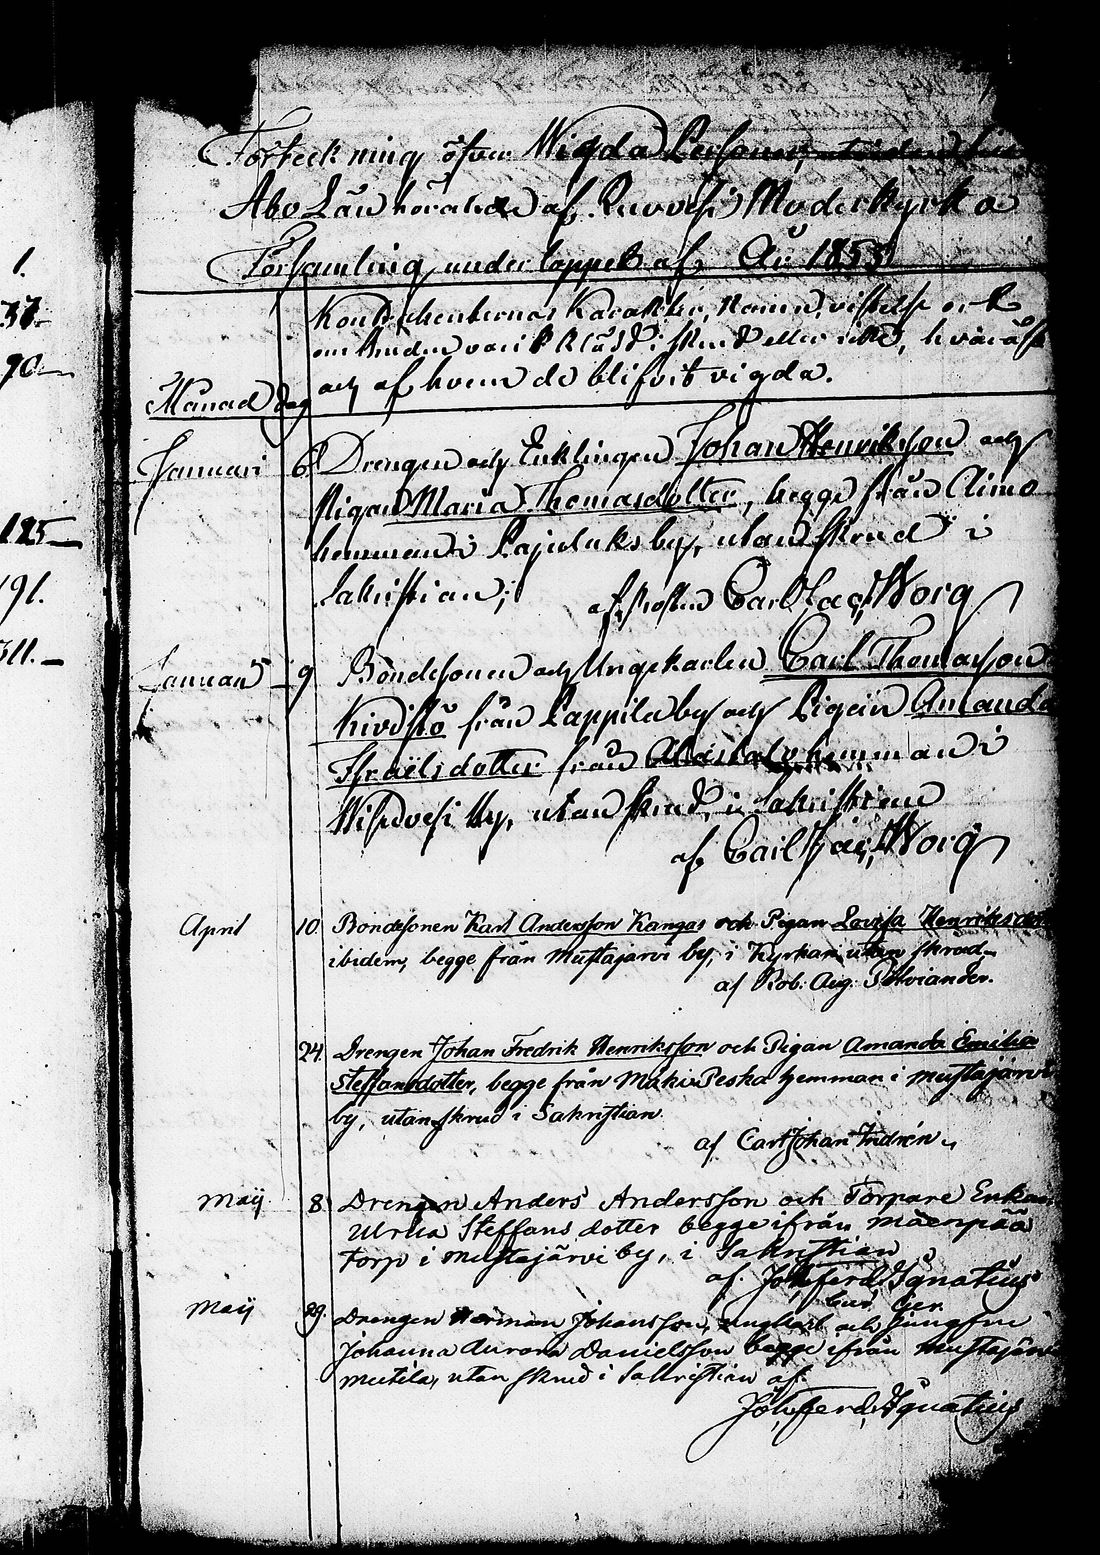 1.
37.
90.
185
191.
311.
Förteckning öfver Wigda Personer,
Åbo Län hörande af Ruovesi Moderkyrka
Församling under loppet af År 1853
Kontrahenternas Karakter, Namn, vistelse och
om bruden varit klädd i skrud eller icke, hvaräst
och af hvem de blifvit vigda.
Månad dag
Januari 6 Drengen och Enklingen Johan Henriksson och
Pigan Maria Thomasdotter, begge från Aimo
hemman i Pajuluks by, utan skrud i
Sakristian;
af Prosten Carl Jac. Worg
Januari 9 Bondesonen och Ungekarlen Carl Thomasson
Kivistö från Pappila by och Pigan Amanda
Israelsdotter från hemman i
Wisuvesi by, utan skrud i Sakristian
af Carl Jac. Worg
April 10 Bondesonen Karl Andersson Kangas och Pigan Lovisa Henriksdott
ibidem, begge från Mustajärvi by, i Kyrkan utan skrud
af Rob: Aug: Polviander.
24. Drengen Johan Fredrik Henriksson och Pigan Amanda Emilia
Steffansdotter, begge från Mäki Peska hemman i Mustajärvi
by, utan skrud i Sakristian
af Carl Johan Indrén.
Maij 8 Drengen Anders Andersson och Torpare Enkan
Ulrika Steffans dotter begge ifrån Mäenpää
torp i Mustajärvi by, i Sakristian
af Joh. Ferd. Ignatius
Maij 29. Drengen Herman Johansson, ungkarl och Jungfru
Johanna Aurora Danielsson begge ifrån Mustajärvi
Mutila, utan skrud i Sakristian af
Joh. Ferd. Ignatius